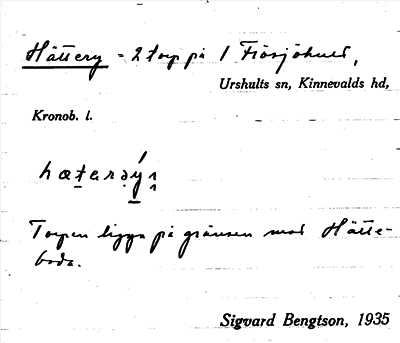 Hättery - 2 torp på 1 Fiösjöhult,
Urshults sn, Kinnevalds hd,
Kronob. l.
hætarəýi
Torpen ligga på gränsen mot Hätte-
boda.
Sigvard Bengtson, 1935